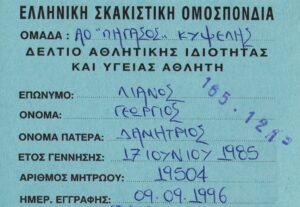 ΕΛΛΗΝΙΚΗ ΣΚΑΚΙΣΤΙΚΗ ΟΜΟΣΠΟΝΔΙΑ
ΟΜΑΔΑ : ΑΟ "ΠΗΓΑΣΟΣ" ΚΥΨΕΛΗΣ
ΔΕΛΤΙΟ ΑΘΛΗΤΙΚΗΣ ΙΔΙΟΤΗΤΑΣ
ΚΑΙ ΥΓΕΙΑΣ ΑΘΛΗΤΗ
ΕΠΩΝΥΜΟ: ΛΙΑΝΟΣ
ΟΝΟΜΑ: ΓΕΩΡΓΙΟΣ
ΟΝΟΜΑ ΠΑΤΕΡΑ: ΔΑΜΗΤΡΙΟΣ
ΕΤΟΣ ΓΕΝΝΗΣΗΣ: 17 ΙΟΥΝΙΟΥ 1985
ΑΡΙΘΜΟΣ ΜΗΤΡΩΟΥ: 19504
ΗΜΕΡ. ΕΓΓΡΑΦΗΣ: 09.09.1996